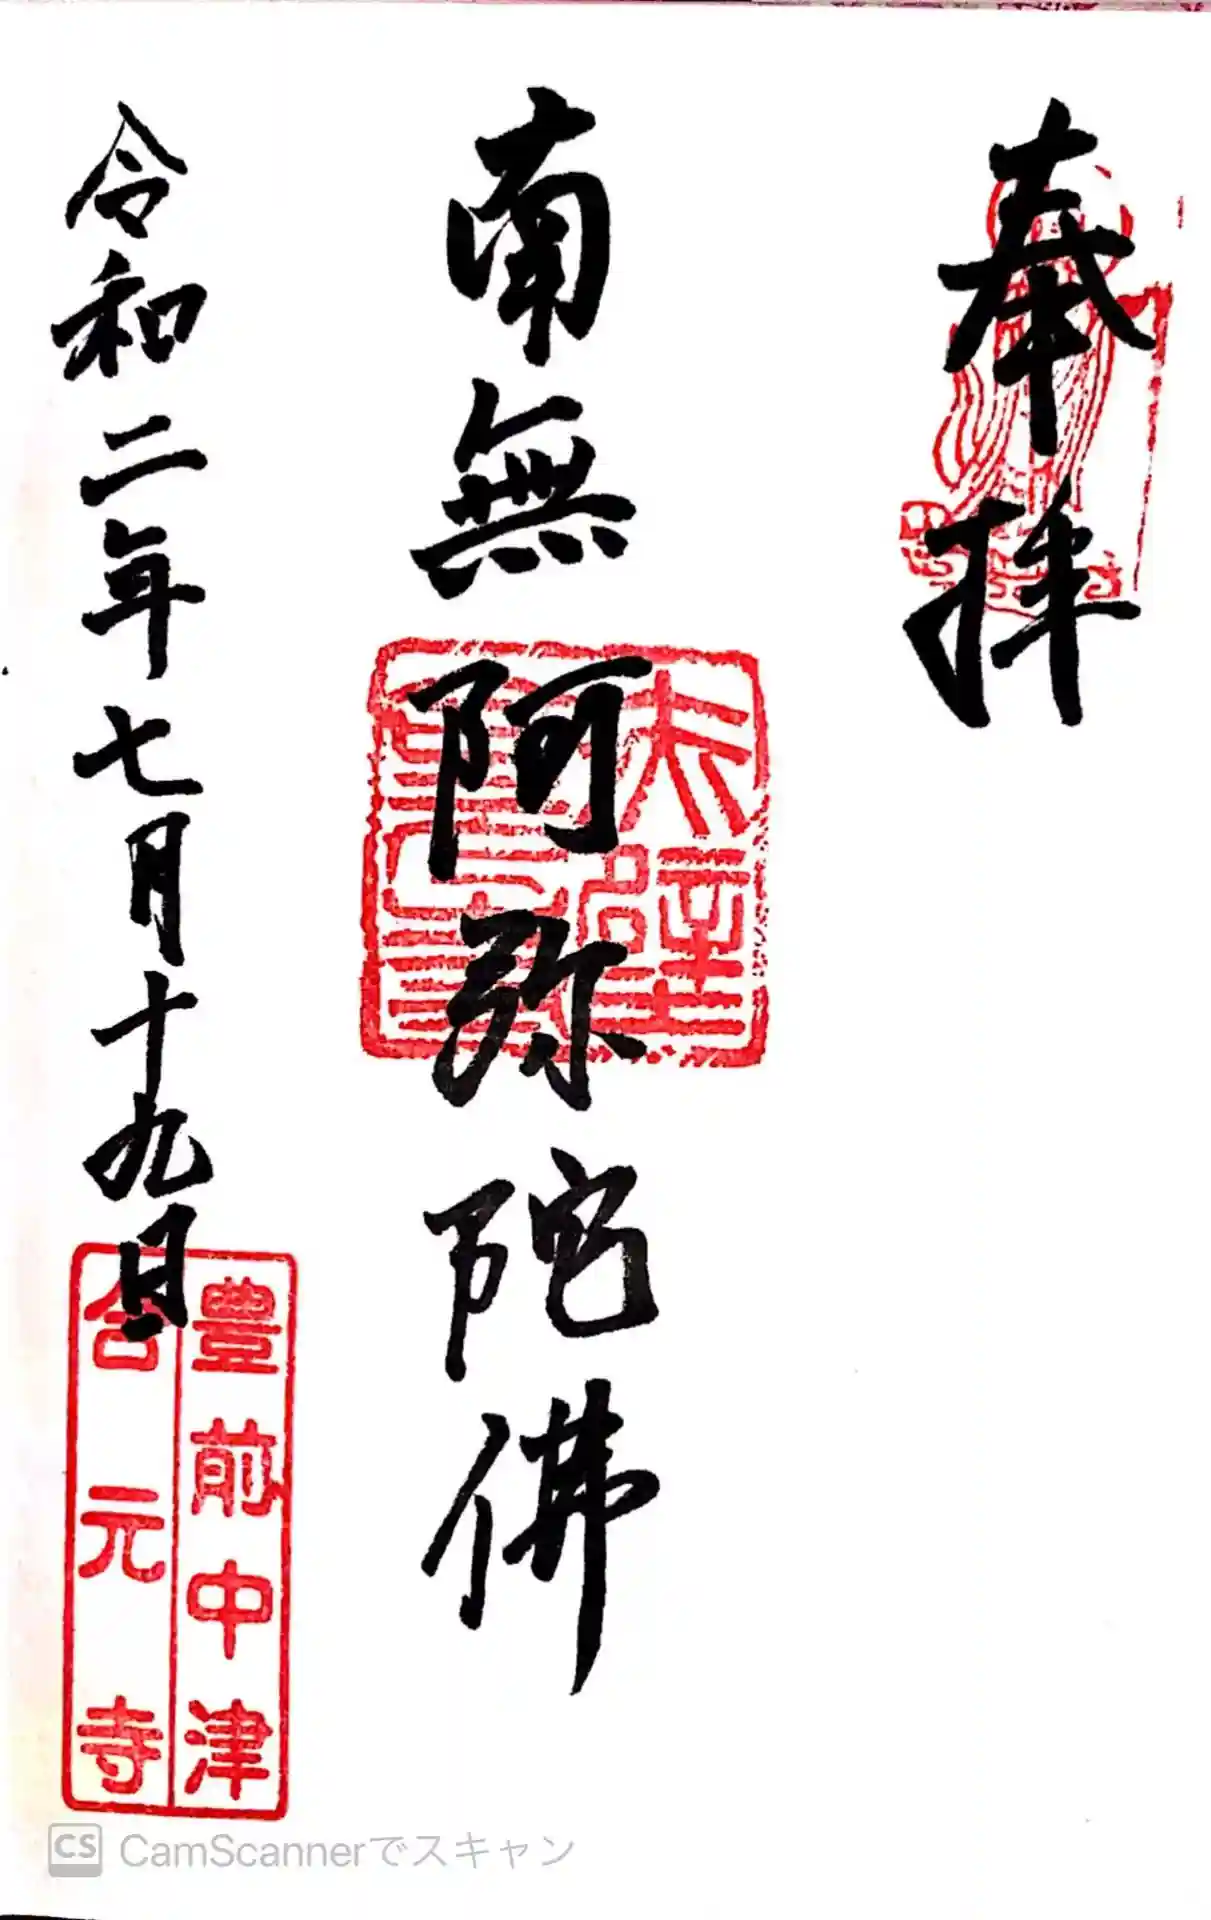 奉拝
南無阿弥陀佛
令和二年七月十九日
豊前中津
合元寺
CS CamScannerでスキャン